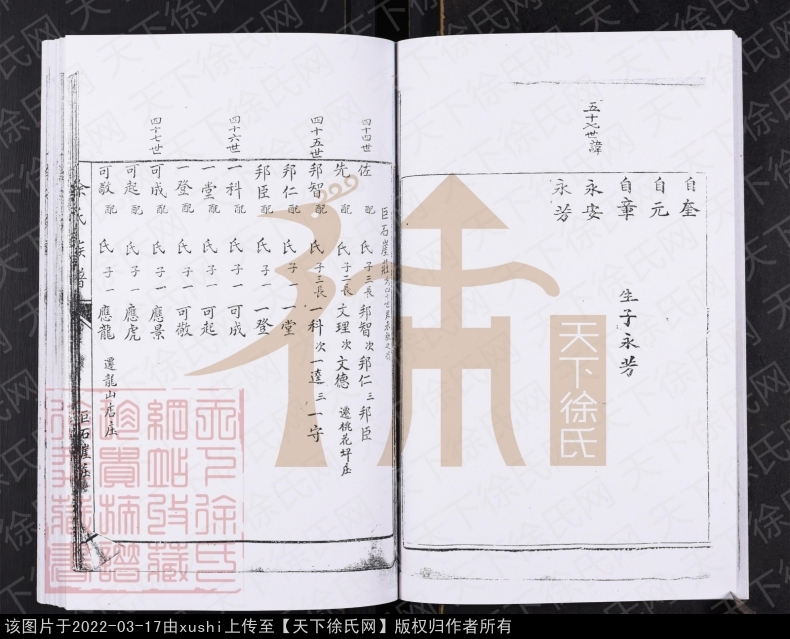 五十九世諱
自奎
自元
自章 生子永芳
永安
永芳
巨石崖莊
四十四世
佐 配 氏 子三 長 邦智 次 邦仁 三 邦臣
先 配 氏 子二 長 文理 次 文德 遷桃花坪庄
四十五世
邦智 配 氏 子三 長 一科 次 一達 三 一守
邦仁 配 氏 子一 一堂
邦臣 配 氏 子一 一登
四十六世
一科 配 氏 子一 可成
一堂 配 氏 子一 可起
一登 配 氏 子一 可敬
四十七世
可成 配 氏 子一 應景
可起 配 氏 子一 應虎
可敬 配 氏 子一 應龍 遷龍山店庄
徐氏族譜 巨石崖庄
天下徐氏
天下徐氏网
该图片于2022-03-17由xushi上传至【天下徐氏网】版权归作者所有